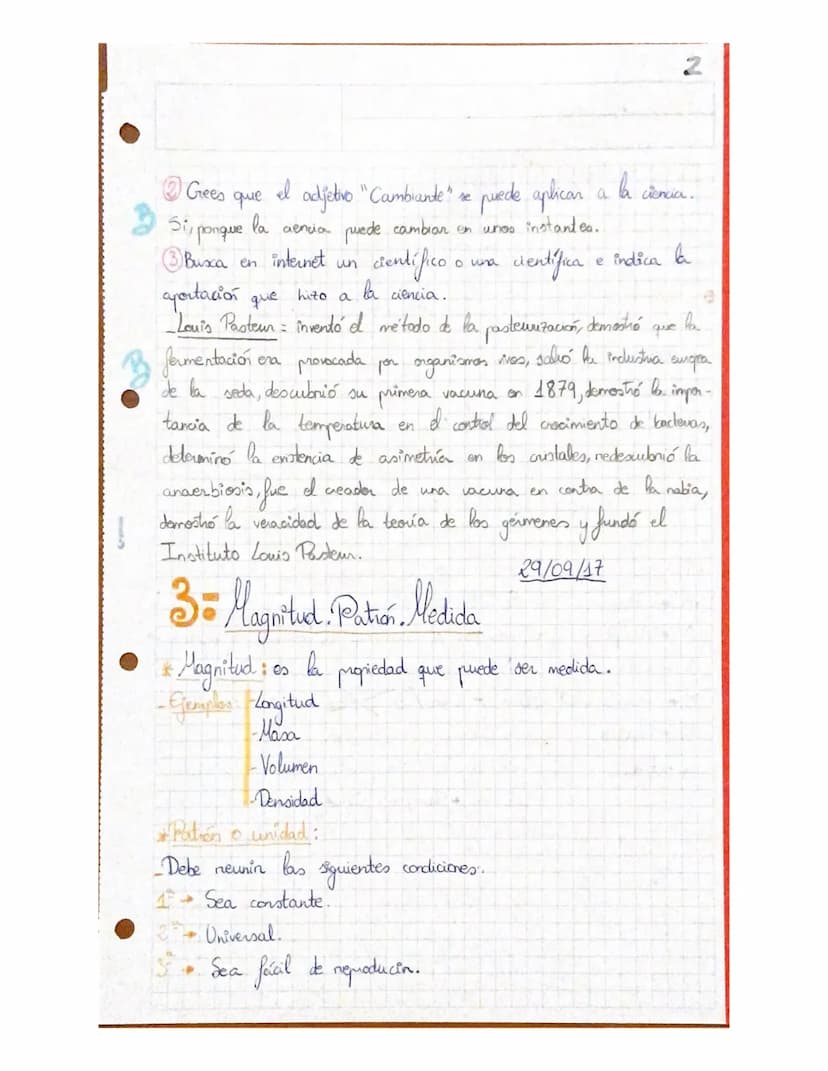 2
② Crees que el adjetivo "Cambiante" se puede aplicar a la ciencia.
B Si, porque la ciencia puede cambiar en unos instantes.
③ Busca en internet un científico o una científica e indica la
aportación que hizo a la ciencia.
- Louis Pasteur = inventó el método de la pasteurización, demostró que la
B fermentación era provocada por organismos vivos, salvó la industria europea
de la seda, descubrió su primera vacuna en 1879, demostró la impor-
tancia de la temperatura en el control del crecimiento de bacterias,
determinó la existencia de asimetría en los cristales, redescubrió la
anaerbiosis, fue el creador de una vacuna en contra de la rabia,
demostró la veracidad de la teoría de los gérmenes y fundó el
Instituto Louis Pasteur.
29/09/17
3= Magnitud. Patrón. Medida
* Magnitud: es la propiedad que puede ser medida.
- Ejemplos: -Longitud
-Masa
-Volumen
-Densidad
* Patrón o unidad:
- Debe reunir las siguientes condiciones:
1º → Sea constante.
2º → Universal.
3º → Sea fácil de reproducir.